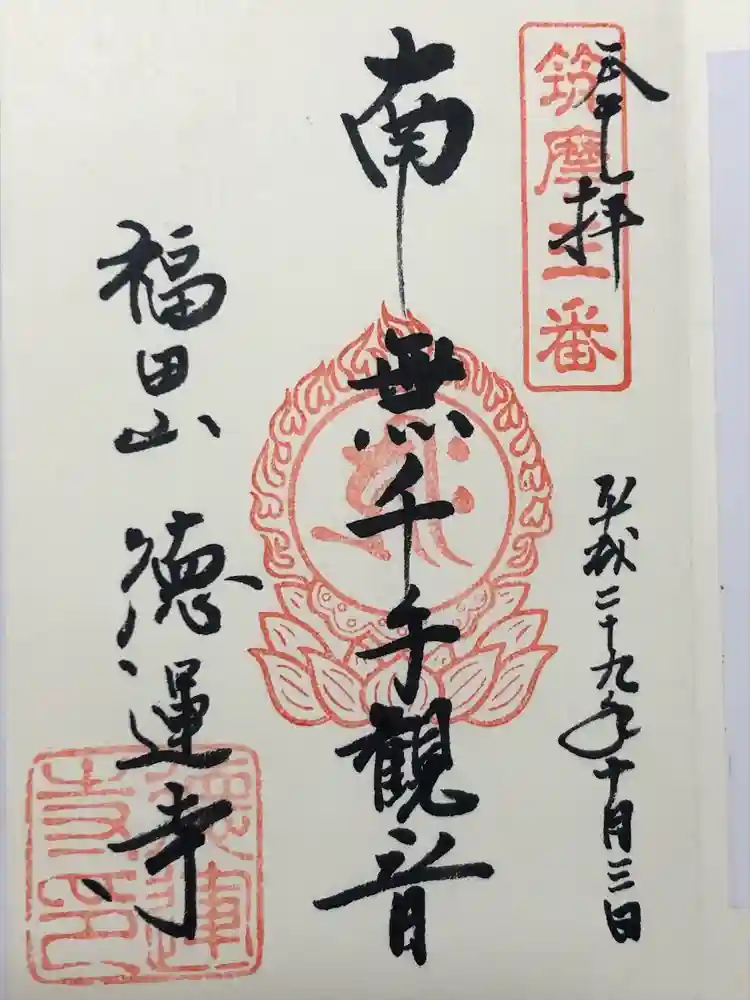 奉拝
筑摩三番
平成二十九年十月三日
南無千手観音
福田山 徳運寺
徳運寺印